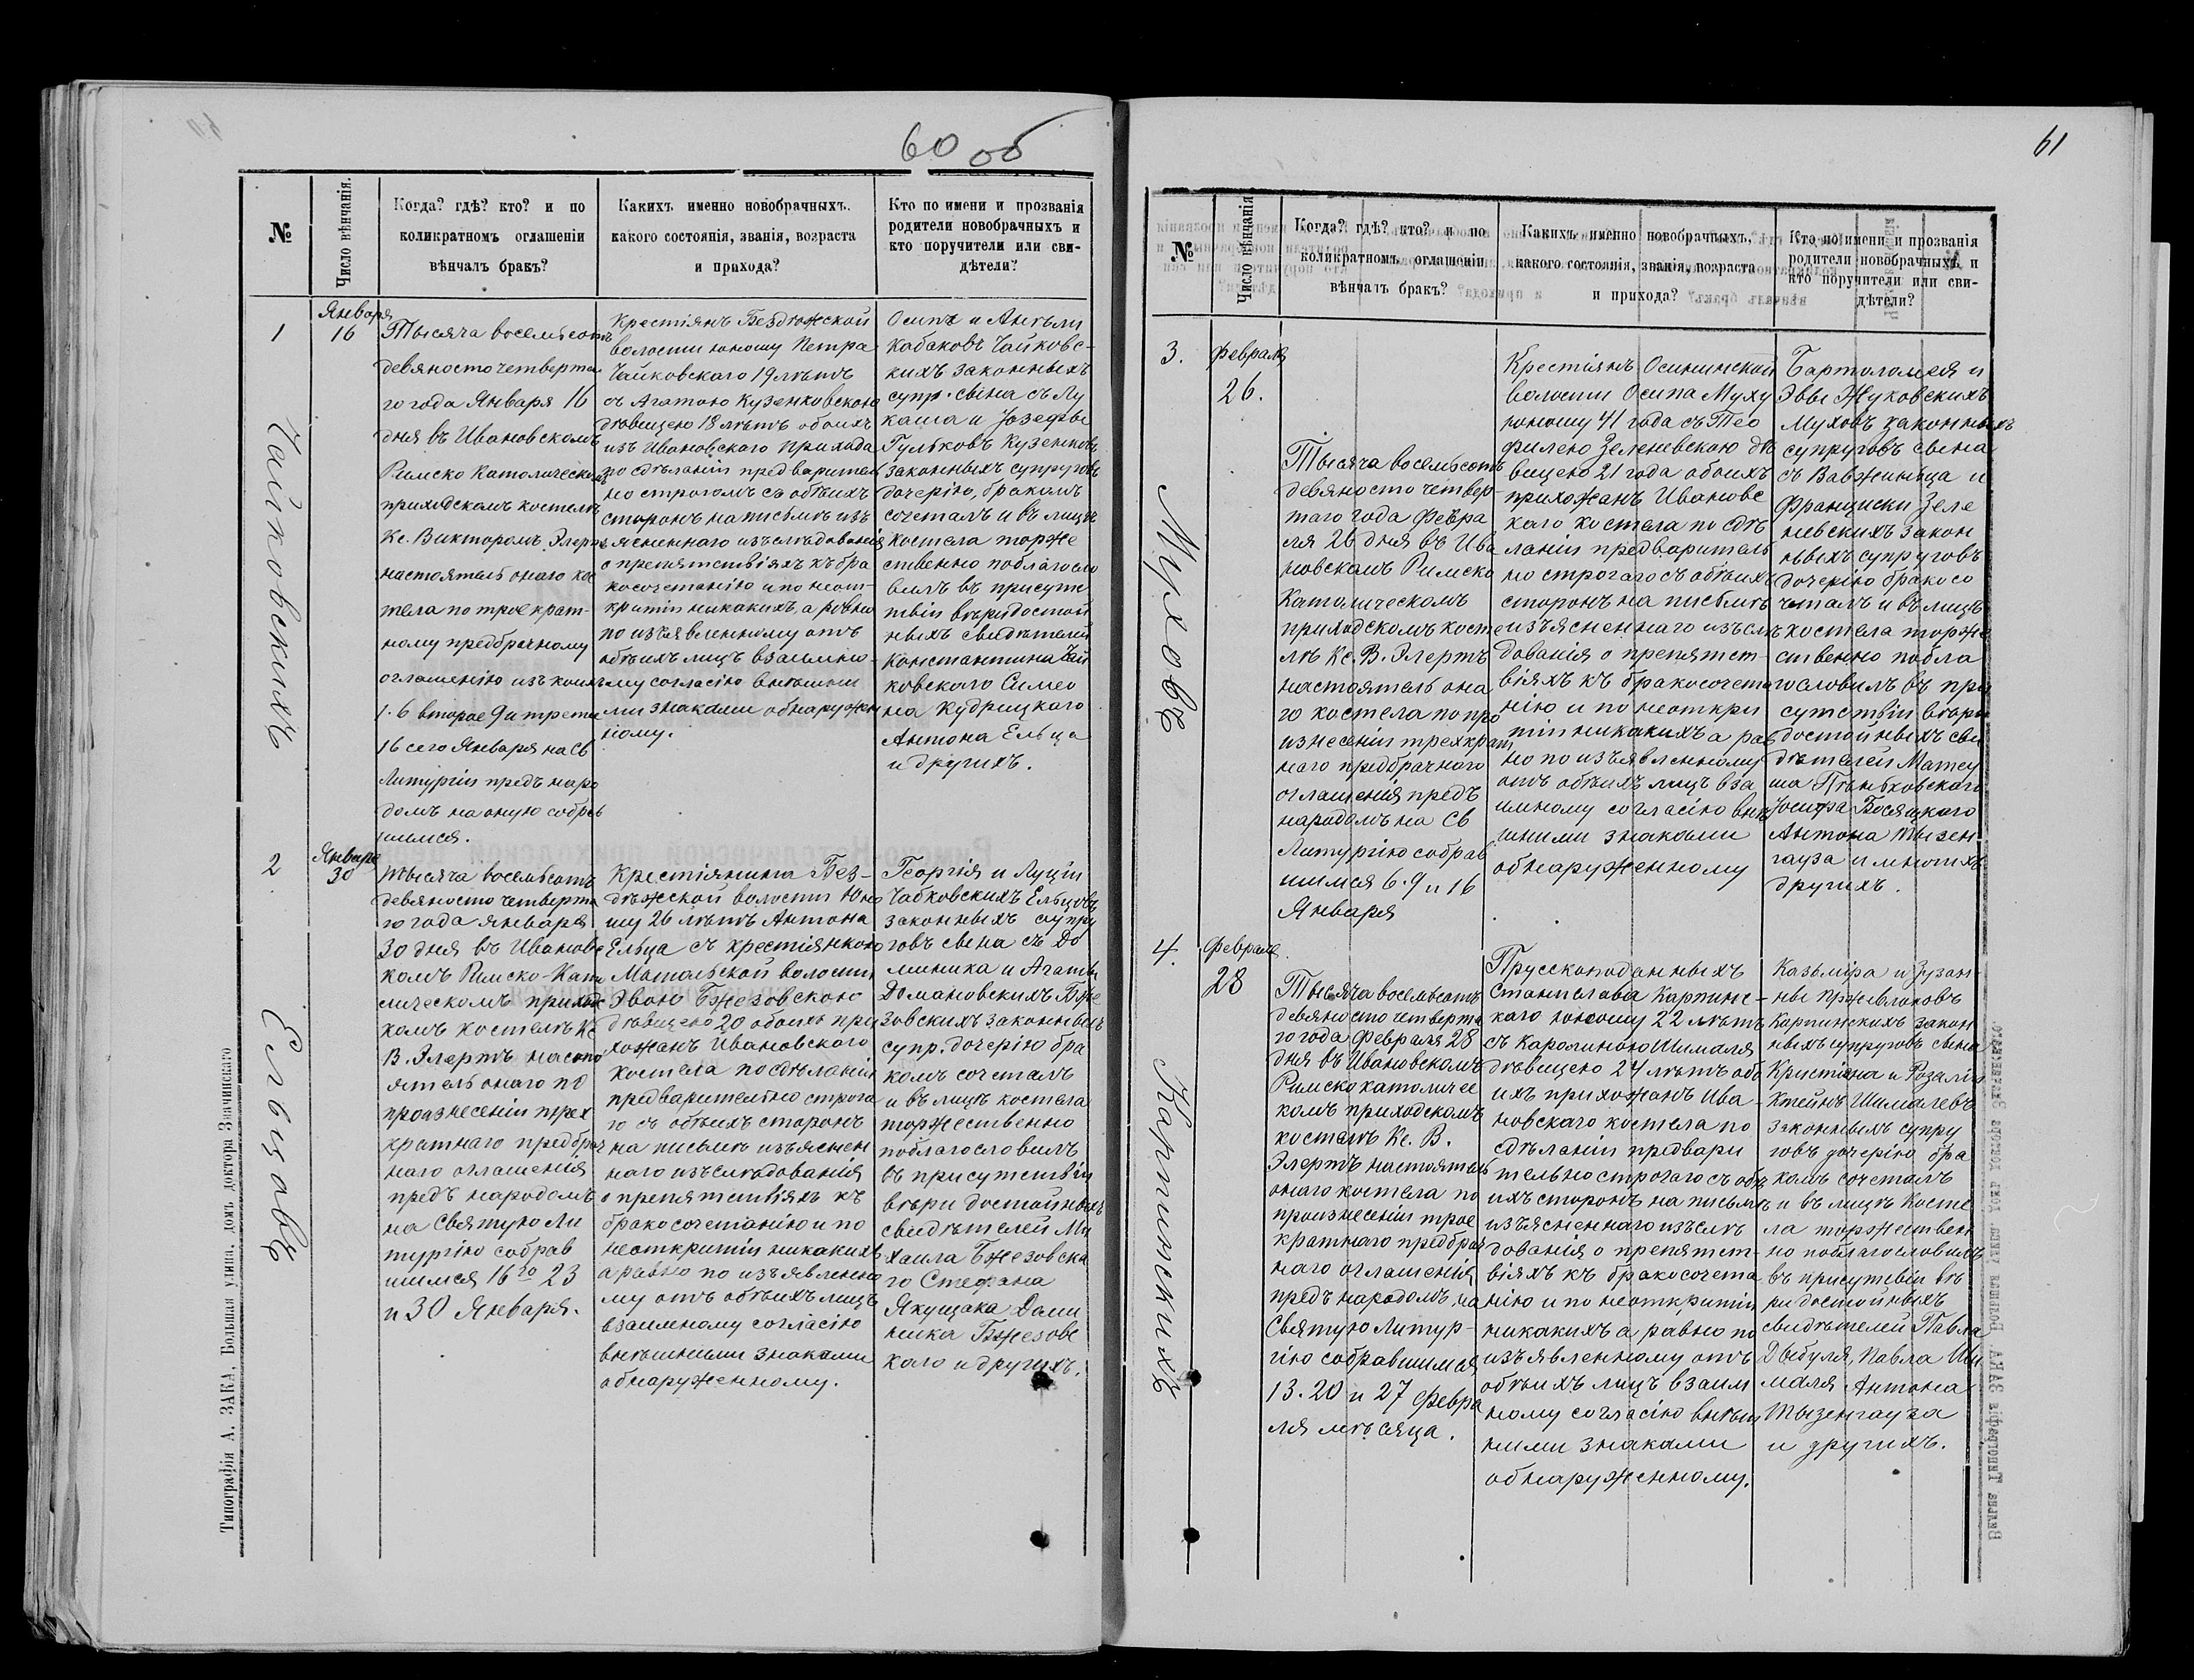 60 об
№
Число вѣнчанія.
Когда? гдѣ? кто? и по
коликратномъ оглашеніи
вѣнчалъ бракъ?
Какихъ именно новобрачныхъ.
какого состоянія, званія, возраста
и прихода?
Кто по имени и прозванія
родители новобрачныхъ и
кто поручители или сви-
дѣтели?
1
Января
16
Чайковскихъ
Тысяча восемьсотъ
девяносто четверта
го года Января 16
дня въ Ивановскомъ
Римско Католическомъ
приходскомъ костелѣ
Кс. Викторомъ Элертъ
настоятель онаго кос
тела по трое крат-
ному предбрачному
оглашенію изъ коихъ
1. 6 второе 9 и третье
16 сего Января на Св
Литургіи предъ наро
домъ на оную собрав
шимся.
Крестіянъ Бездѣжской
волости юношу Петра
Чайковскаго 19 лѣтъ
съ Агатою Кузенковскою
дѣвицею 18 лѣтъ обоихъ
изъ Ивановскаго прихода
по сдѣланіи предваритель
но строгомъ съ обѣихъ
сторонъ на письмѣ изъ
ясненнаго изъслѣдованія
о препятствіяхъ къ бра
косочетанію и по неот-
критіи никакихъ, а равно
по изъявленному отъ
обѣихъ лицъ взаимно-
му согласію внѣшни
ми знаками обнаружен
ному.
Осипа и Ангели
Кабаковъ Чайковс-
кихъ законныхъ
супр. сына съ Лу
каша и Іозефы
Гульковъ Кузенковъ
законныхъ супруговъ
дочерію, бракомъ
сочеталъ и въ лицѣ
костела торже
ственно поблагосло
вилъ въ присутс
твіи вѣридостой
ныхъ свидѣтелей
Константина Чай
ковскаго Симео
на Кудрицкаго
Антона Ельца
и другихъ.
2
Января
30
Ельцовъ
Тысяча восемьсотъ
девяносто четверта
го года Января
30 дня въ Ивановс
комъ Римско-Като
лическомъ приходс
комъ костелѣ Кс
В. Элертъ насто
ятель онаго по
произнесеніи трех
кратнаго предбрач
наго оглашенія
предъ народомъ
на Святую Ли
тургію собрав
шимся 16го 23
и 30 Января.
Крестіянина Без-
дѣжской волости Юно
шу 26 лѣтъ Антона
Ельца съ крестіянкою
Мотольской волости
Эвою Бжезовскою
дѣвицею 20 обоихъ при
хожанъ Ивановскаго
костела по сдѣланіи
предварительно строга
го съ обѣихъ сторонъ
на письмѣ изъяснен
наго изъслѣдованія
о препятствіяхъ къ
бракосочетанію и по
неоткритіи никакихъ
а равно по изъявленно
му отъ обѣихъ лицъ
взаимному согласію
внѣшними знаками
обнаруженному.
Георгія и Луціи
Чабковскихъ Ельцовъ
законныхъ супру
говъ сына съ До
миника и Агаты
Домановскихъ Бже
зовскихъ законныхъ
супр. дочерію бра
комъ сочеталъ
и въ лицѣ костела
торжественно
поблагословилъ
въ присутствіи
вѣри достойныхъ
свидѣтелей Ми
хаила Бжезовска
го Стефана
Якущака Доми
ника Бжезовс
каго и другихъ.
Типографія А. ЗАКА, Большая улица, домъ доктора Звачинскаго
61
№
Число вѣнчанія
Когда? гдѣ? кто? и по
коликратномъ оглашеніи
вѣнчалъ бракъ?
Какихъ именно новобрачныхъ,
какого состоянія, званія, возраста
и прихода?
Кто по имени и прозванія
родители новобрачныхъ и
кто поручители или сви-
дѣтели?
3.
Февраля
26.
Муховъ
Тысяча восемьсотъ
девяносто четвер
таго года Февра
ля 26 дня въ Ива
новскомъ Римско
Католическомъ
приходскомъ косте
лѣ Кс. В. Элертъ
настоятель она
го костела по про
изнесеніи трехкрат
наго предбрачного
оглашенія предъ
народомъ на Св
Литургію собрав
шимся 6. 9 и 16
Января
Крестіянъ Осининской
волости Осипа Муху
юношу 41 года съ Тео
филею Зеленевскою дѣ
вицею 21 года обоихъ
прихожанъ Ивановс
каго костела по сдѣ
ланіи предваритель
но строгаго съ обѣихъ
сторонъ на письмѣ
изъясненнаго изъслѣ
дованія о препятст-
віяхъ къ бракосочета
нію и по неоткри
тіи никакихъ а рав
но по изъявленному
отъ обѣихъ лицъ вза
имному согласію внѣ
шними знаками
обнаруженному
Бартоломея и
Эвы Жуковскихъ
Муховъ законныхъ
супруговъ сына
съ Вавжиньца и
Францишки Зеле
невскихъ закон
ныхъ супруговъ
дочерію бракосо
четалъ и въ лицѣ
костела торже
ственно побла
гословилъ въ при
сутствіи вѣри
достойныхъ сви
дѣтелей Матеу
ша Пѣньковскаго
Іосифа Босяцкаго
Антона Тызен
гауза и многихъ
другихъ.
4.
Февраля
28
Карпинскихъ
Тысяча восемьсотъ
девяносто четверта
го года Февраля 28
дня въ Ивановскомъ
Римско католичес
комъ приходскомъ
костелѣ Кс. В.
Элертъ настоятель
онаго костела по
произнесеніи трое
кратнаго предбрач
наго оглашенія
предъ народомъ на
Святую Литур-
гію собравшимся
13. 20 и 27 Февра
ля мѣсяца.
Прусскоподанныхъ
Станислава Карпинс-
каго юношу 22 лѣтъ
съ Каролиною Шималя
дѣвицею 24 лѣтъ обо
ихъ прихожанъ Ива-
новскаго костела по
сдѣланіи предвари
тельно строгаго съ обѣ
ихъ сторонъ на письмѣ
изъясненнаго изъслѣ
дованія о препятст-
віяхъ къ бракосочета
нію и по неоткритіи
никакихъ а равно по
изъявленному отъ
обѣихъ лицъ взаим
ному согласію внѣш
ними знаками
обнаруженному.
Казьміра и Зузан-
ны Пржевлоковъ
Карпинскихъ закон
ныхъ супруговъ сына
Кристіана и Розаліи
Ктейнъ Шималевъ
законныхъ супру
говъ дочерію бра
комъ сочеталъ
и въ лицѣ косте
ла торжествен
но поблагословилъ
въ присутвіи вѣ
ри достойныхъ
свидѣтелей Павла
Двыбуля, Павла Ши
маля Антона
Тызенгауза
и другихъ.